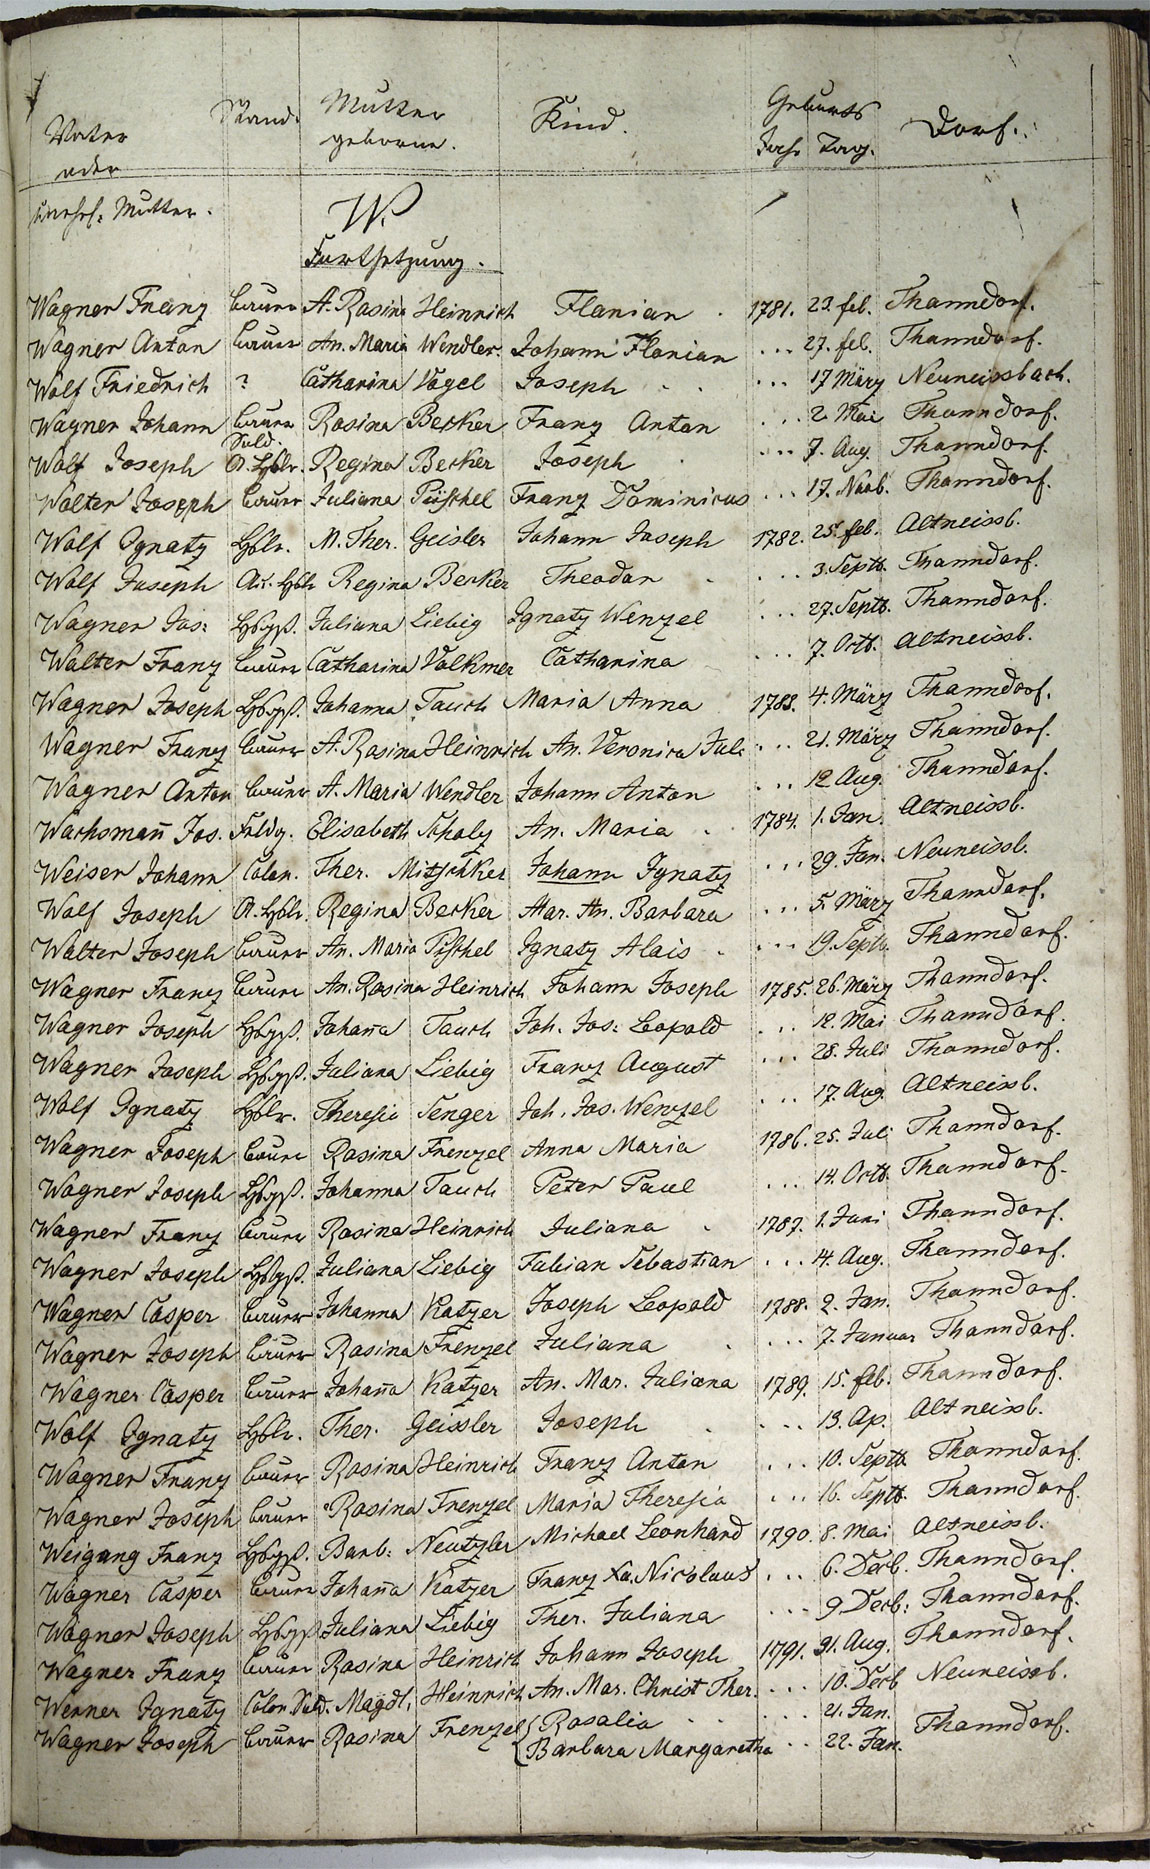 Vater Stand. Mutter Kind. Geburts Dorf.
oder geborne. Jahr Tag.
unehel. Mutter.
W.
Fortsetzung.
Wagner Franz Bauer A. Rosina Heinrich Florian 1781. 23. feb. Thanndorf.
Wagner Anton Bauer An. Maria Wendler. Johann Florian ... 27. feb. Thanndorf.
Wolf Friedrich ? Catharina Vogel Joseph ... 17 März Neuneissbach.
Wagner Johann Bauer Rosina Becker Franz Anton ... 2. Mai Thanndorf.
Sold.
Wolf Joseph A. Hßlr. Regina Becker Joseph ... 7. Aug. Thanndorf.
Walter Joseph Bauer Juliana Püschel Franz Dominicus ... 17. Novb. Thanndorf.
Wolf Ignatz Hßlr. M. Ther. Geisler Johann Joseph 1782. 25. feb. Altneissb.
Wolf Joseph Au. Hßlr Regina Becker Theodor ... 3. Septb. Thanndorf.
Wagner Jos: Hßgß. Juliana Liebig Ignatz Wenzel ... 27. Septb. Thanndorf.
Walter Franz Bauer Catharina Volkmer Catharina ... 7. Octb. Altneissb.
Wagner Joseph Hßgß. Johanna Tauch Maria Anna 1783. 4. März Thanndorf.
Wagner Franz Bauer A. Rosina Heinrich An. Veronica Jul: ... 21. März Thanndorf.
Wagner Anton Bauer A. Maria Wendler Johann Anton ... 12 Aug. Thanndorf.
Wachsmañ Jos. Feldg. Elisabeth Scholz An. Maria 1784. 1. Jan. Altneissb.
Weiser Johann Colon. Ther. Mitschker Johann Ignatz ... 29. Jan. Neuneissb.
Wolf Joseph A. Hßlr. Regina Becker Mar. An. Barbara ... 5. März Thanndorf.
Walter Joseph Bauer An. Maria Püschel Ignatz Alois ... 19. Septb. Thanndorf.
Wagner Franz Bauer An. Rosina Heinrich Johann Joseph 1785. 26. März Thanndorf.
Wagner Joseph Hßgß. Johaña Tauch Joh. Jos: Leopold ... 12. Mai Thanndorf.
Wagner Joseph Hßgß. Juliana Liebig Franz August ... 28. Juli Thanndorf.
Wolf Ignatz Hßlr. Theresia Senger Joh. Jos. Wenzel ... 17. Aug. Altneissb.
Wagner Joseph Bauer Rosina Frenzel Anna Maria 1786. 25. Juli Thanndorf.
Wagner Joseph Hßgß. Johanna Tauch Peter Paul ... 14. Octb. Thanndorf.
Wagner Franz Bauer Rosina Heinrich Juliana 1787. 1. Juni Thanndorf.
Wagner Joseph Hßgß. Juliana Liebig Fabian Sebastian ... 4. Aug. Thanndorf.
Wagner Casper Bauer Johanna Katzer Joseph Leopold 1788. 2. Jan. Thanndorf.
Wagner Joseph Bauer Rosina Frenzel Juliana ... 7. Januar Thanndorf.
Wagner Casper Bauer Johaña Katzer An. Mar. Juliana 1789. 15. feb. Thanndorf.
Wolf Ignatz Hßlr. Ther. Geissler Joseph ... 13. Ap. Altneissb.
Wagner Franz Bauer Rosina Heinrich Franz Anton ... 10. Septb. Thanndorf.
Wagner Joseph Bauer Rosina Frenzel Maria Theresia ... 16. Septb. Thanndorf.
Weigang Franz Hßgß. Barb: Neutzler Michael Leonhard 1790. 8. Mai Altneissb.
Wagner Casper Bauer Johaña Katzer Franz Xa. Nicolaus ... 6. Decb. Thanndorf.
Wagner Joseph Hßgß. Juliana Liebig Ther. Juliana ... 9 Decb: Thanndorf.
Wagner Franz Bauer Rosina Heinrich Johann Joseph 1791. 31. Aug. Thanndorf.
Werner Ignatz Colon. Sold. Magdl. Heinrich An. Mar. Christ Ther. ... 10. Decb Neuneissb.
Wagner Joseph Bauer Rosina Frenzel { Rosalia ... 21. Jan.
Barbara Margaretha .. 22. Jan. Thanndorf.